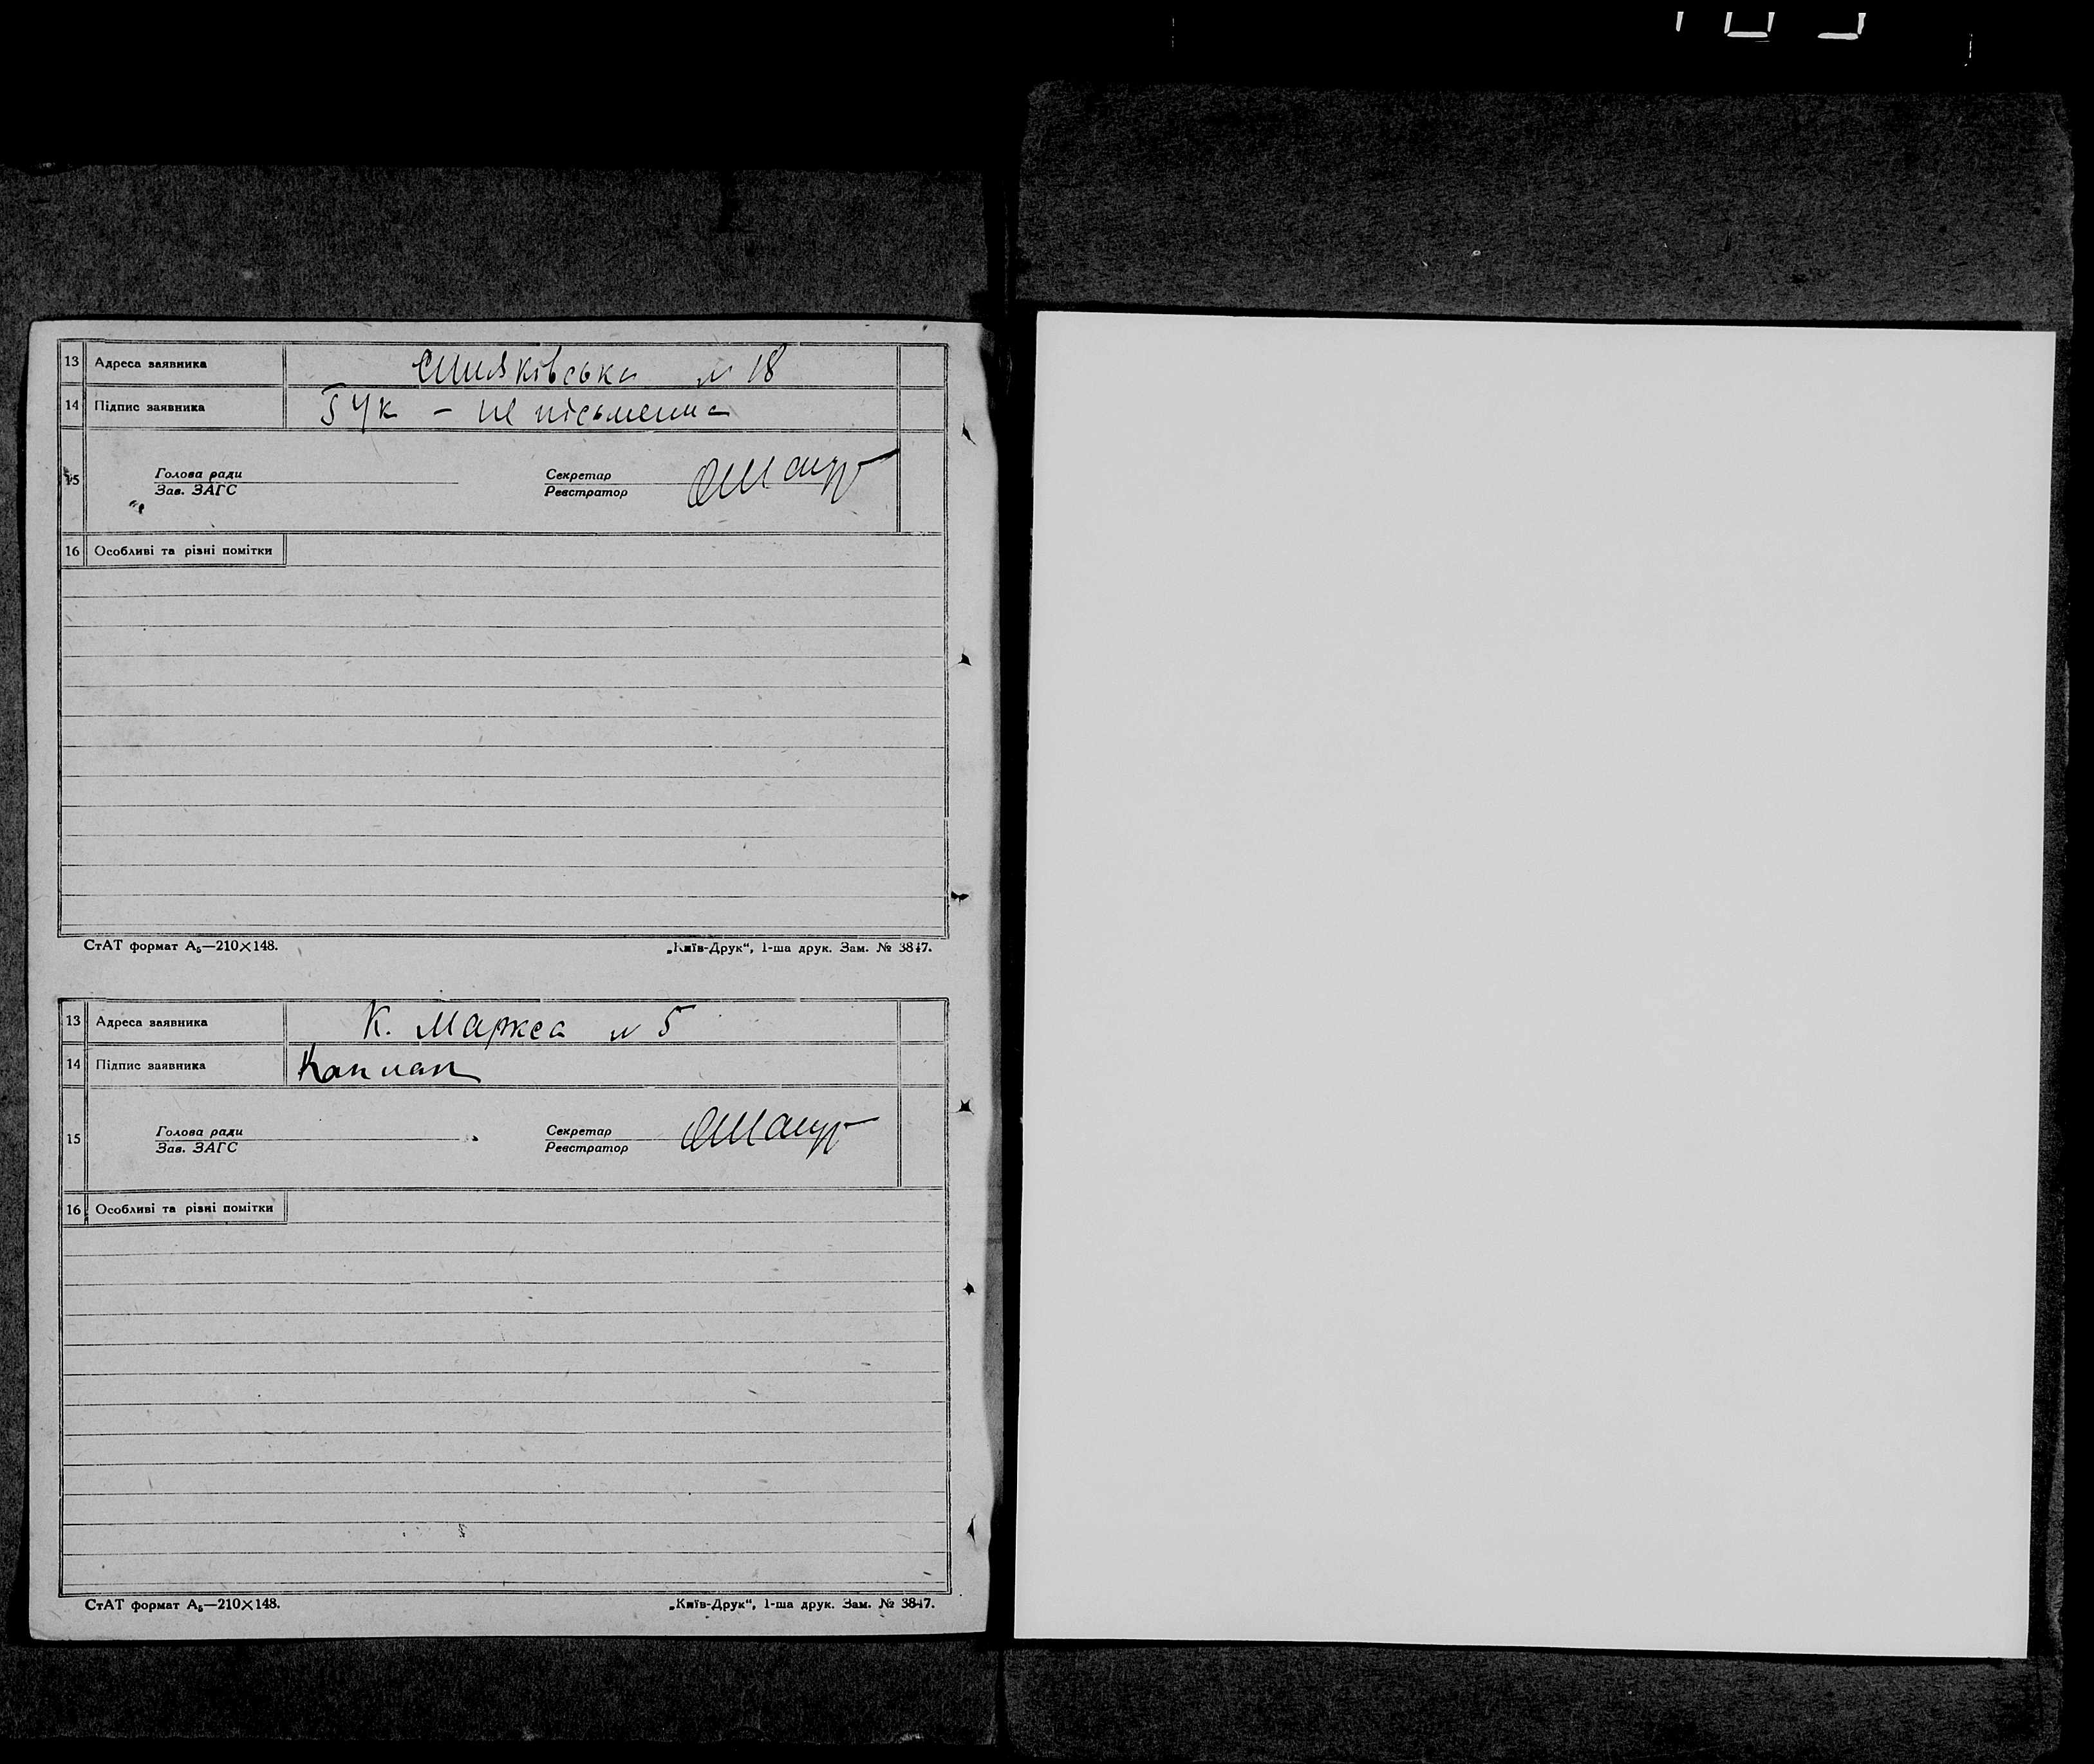 13 Адреса заявника № 18
14 Підпис заявника Гук - не письменна
15 Голова ради Секретар
Зав. ЗАГС Реєстратор
16 Особливі та різні помітки
СтАТ формат А₅—210×148. „Київ-Друк“, 1-ша друк. Зам. № 3847.
13 Адреса заявника К. Маркса № 5
14 Підпис заявника Каплан
15 Голова ради Секретар
Зав. ЗАГС Реєстратор
16 Особливі та різні помітки
СтАТ формат А₅—210×148. „Київ-Друк“, 1-ша друк. Зам. № 3847.